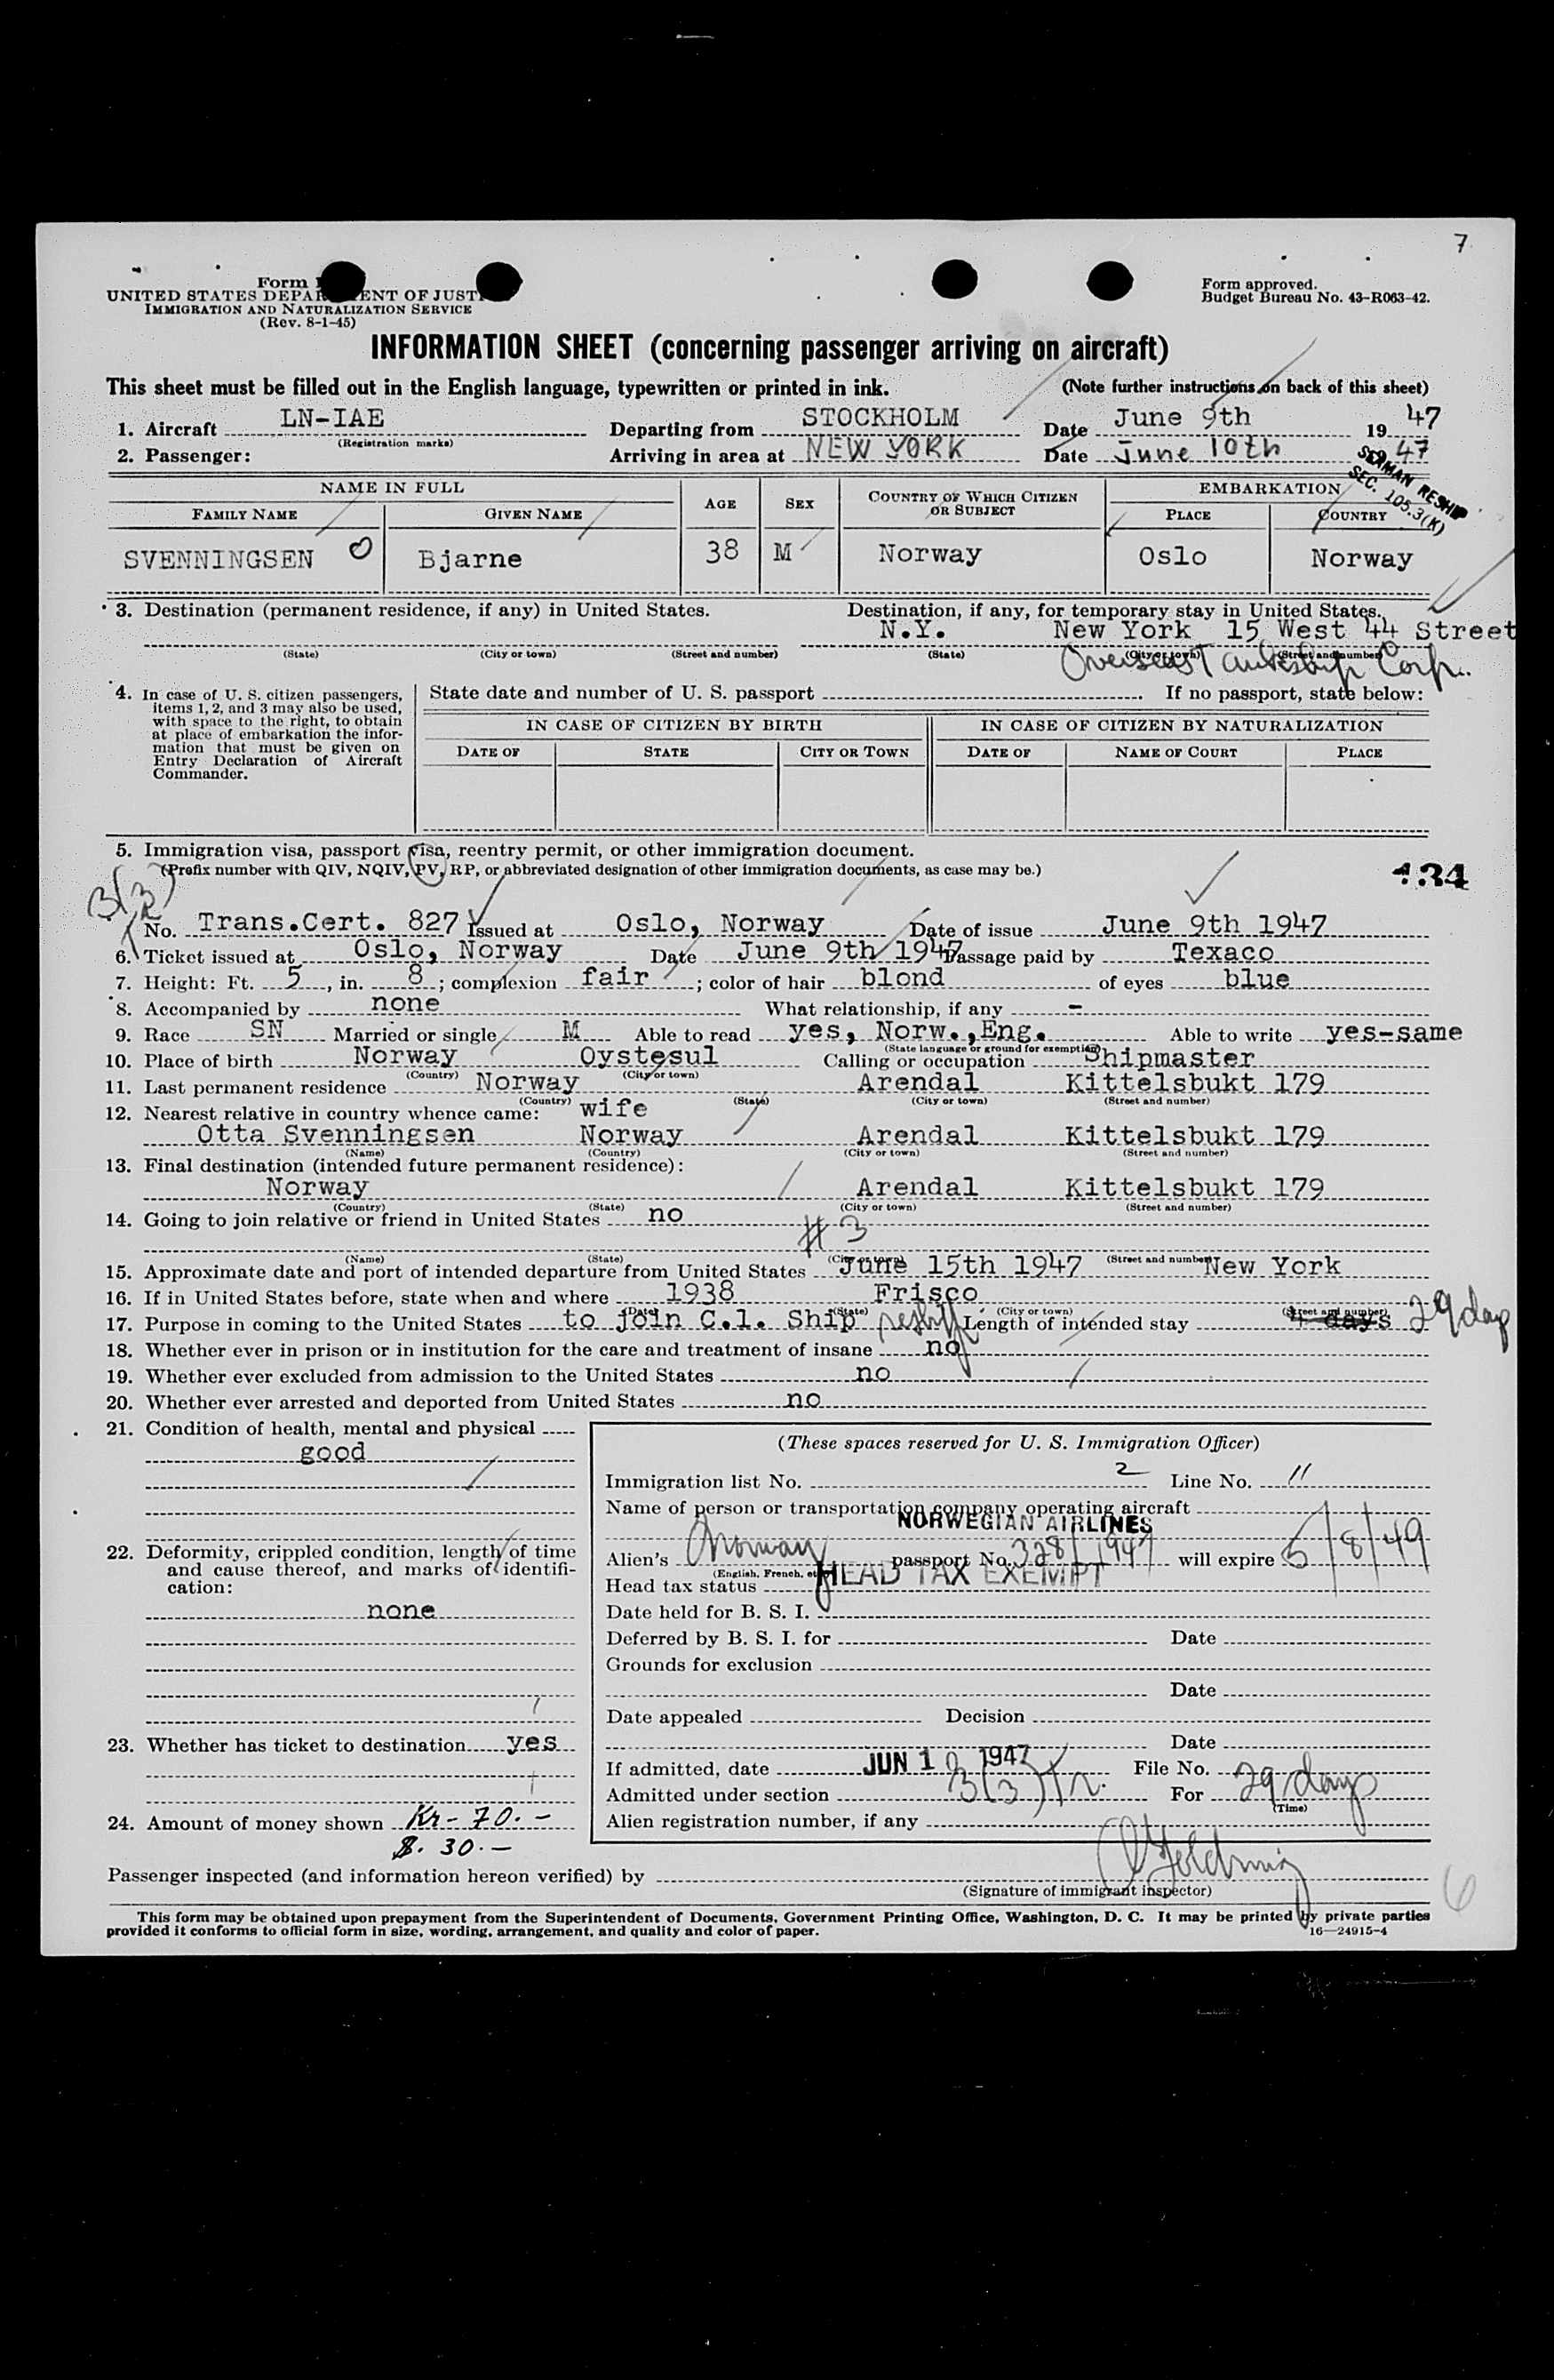 7
Form
UNITED STATES DEPARTMENT OF JUSTICE
IMMIGRATION AND NATURALIZATION SERVICE
(Rev. 8-1-45)
Form approved.
Budget Bureau No. 43-R063-42.
INFORMATION SHEET (concerning passenger arriving on aircraft)
This sheet must be filled out in the English language, typewritten or printed in ink. (Note further instructions on back of this sheet)
1. Aircraft LN-IAE Departing from STOCKHOLM Date June 9th 19 47
(Registration marks)
2. Passenger: Arriving in area at NEW YORK Date June 10th 19 47
SEAMAN RESHIP
SEC. 105.3(K)
NAME IN FULL AGE SEX COUNTRY OF WHICH CITIZEN OR SUBJECT EMBARKATION
FAMILY NAME GIVEN NAME PLACE COUNTRY
SVENNINGSEN Bjarne 38 M Norway Oslo Norway
3. Destination (permanent residence, if any) in United States. Destination, if any, for temporary stay in United States.
N.Y. New York 15 West 44 Street
(State) (City or town) (Street and number) (State) (City or town) (Street and number)
Overseas Tankship Corp.
4. In case of U. S. citizen passengers, items 1, 2, and 3 may also be used, with space to the right, to obtain at place of embarkation the information that must be given on Entry Declaration of Aircraft Commander.
State date and number of U. S. passport If no passport, state below:
IN CASE OF CITIZEN BY BIRTH IN CASE OF CITIZEN BY NATURALIZATION
DATE OF STATE CITY OR TOWN DATE OF NAME OF COURT PLACE
5. Immigration visa, passport visa, reentry permit, or other immigration document.
(Prefix number with QIV, NQIV, PV, RP, or abbreviated designation of other immigration documents, as case may be.)
434
3(3)
No. Trans.Cert. 827 Issued at Oslo, Norway Date of issue June 9th 1947
6. Ticket issued at Oslo, Norway Date June 9th 1947 Passage paid by Texaco
7. Height: Ft. 5, in. 8; complexion fair; color of hair blond of eyes blue
8. Accompanied by none What relationship, if any -
9. Race SN Married or single M Able to read yes, Norw.,Eng. Able to write yes-same
(State language or ground for exemption)
10. Place of birth Norway Oystesul Calling or occupation Shipmaster
(Country) (City or town)
11. Last permanent residence Norway Arendal Kittelsbukt 179
(Country) (State) (City or town) (Street and number)
12. Nearest relative in country whence came: wife
Otta Svenningsen Norway Arendal Kittelsbukt 179
(Name) (Country) (City or town) (Street and number)
13. Final destination (intended future permanent residence):
Norway Arendal Kittelsbukt 179
(Country) (State) (City or town) (Street and number)
14. Going to join relative or friend in United States no
#3
(Name) (State) (City or town) (Street and number)
15. Approximate date and port of intended departure from United States June 15th 1947 New York
16. If in United States before, state when and where 1938 Frisco
(Date) (State) (City or town) (Street and number)
17. Purpose in coming to the United States to join C.l. Ship reship Length of intended stay 4 days 29 days
18. Whether ever in prison or in institution for the care and treatment of insane no
19. Whether ever excluded from admission to the United States no
20. Whether ever arrested and deported from United States no
21. Condition of health, mental and physical
good
22. Deformity, crippled condition, length of time and cause thereof, and marks of identification:
none
23. Whether has ticket to destination yes
24. Amount of money shown Kr- 70.-
$. 30.-
(These spaces reserved for U. S. Immigration Officer)
Immigration list No. 2 Line No. 11
Name of person or transportation company operating aircraft
NORWEGIAN AIRLINES
Alien's Norway passport No. 328/1947 will expire 5/8/49
(English, French, etc.)
Head tax status HEAD TAX EXEMPT
Date held for B. S. I.
Deferred by B. S. I. for Date
Grounds for exclusion
Date
Date appealed Decision
Date
If admitted, date JUN 10 1947 File No.
Admitted under section 3(3) For 29 days
(Time)
Alien registration number, if any
Passenger inspected (and information hereon verified) by
(Signature of immigrant inspector)
6
This form may be obtained upon prepayment from the Superintendent of Documents, Government Printing Office, Washington, D. C. It may be printed by private parties
provided it conforms to official form in size, wording, arrangement, and quality and color of paper. 16—24915-4